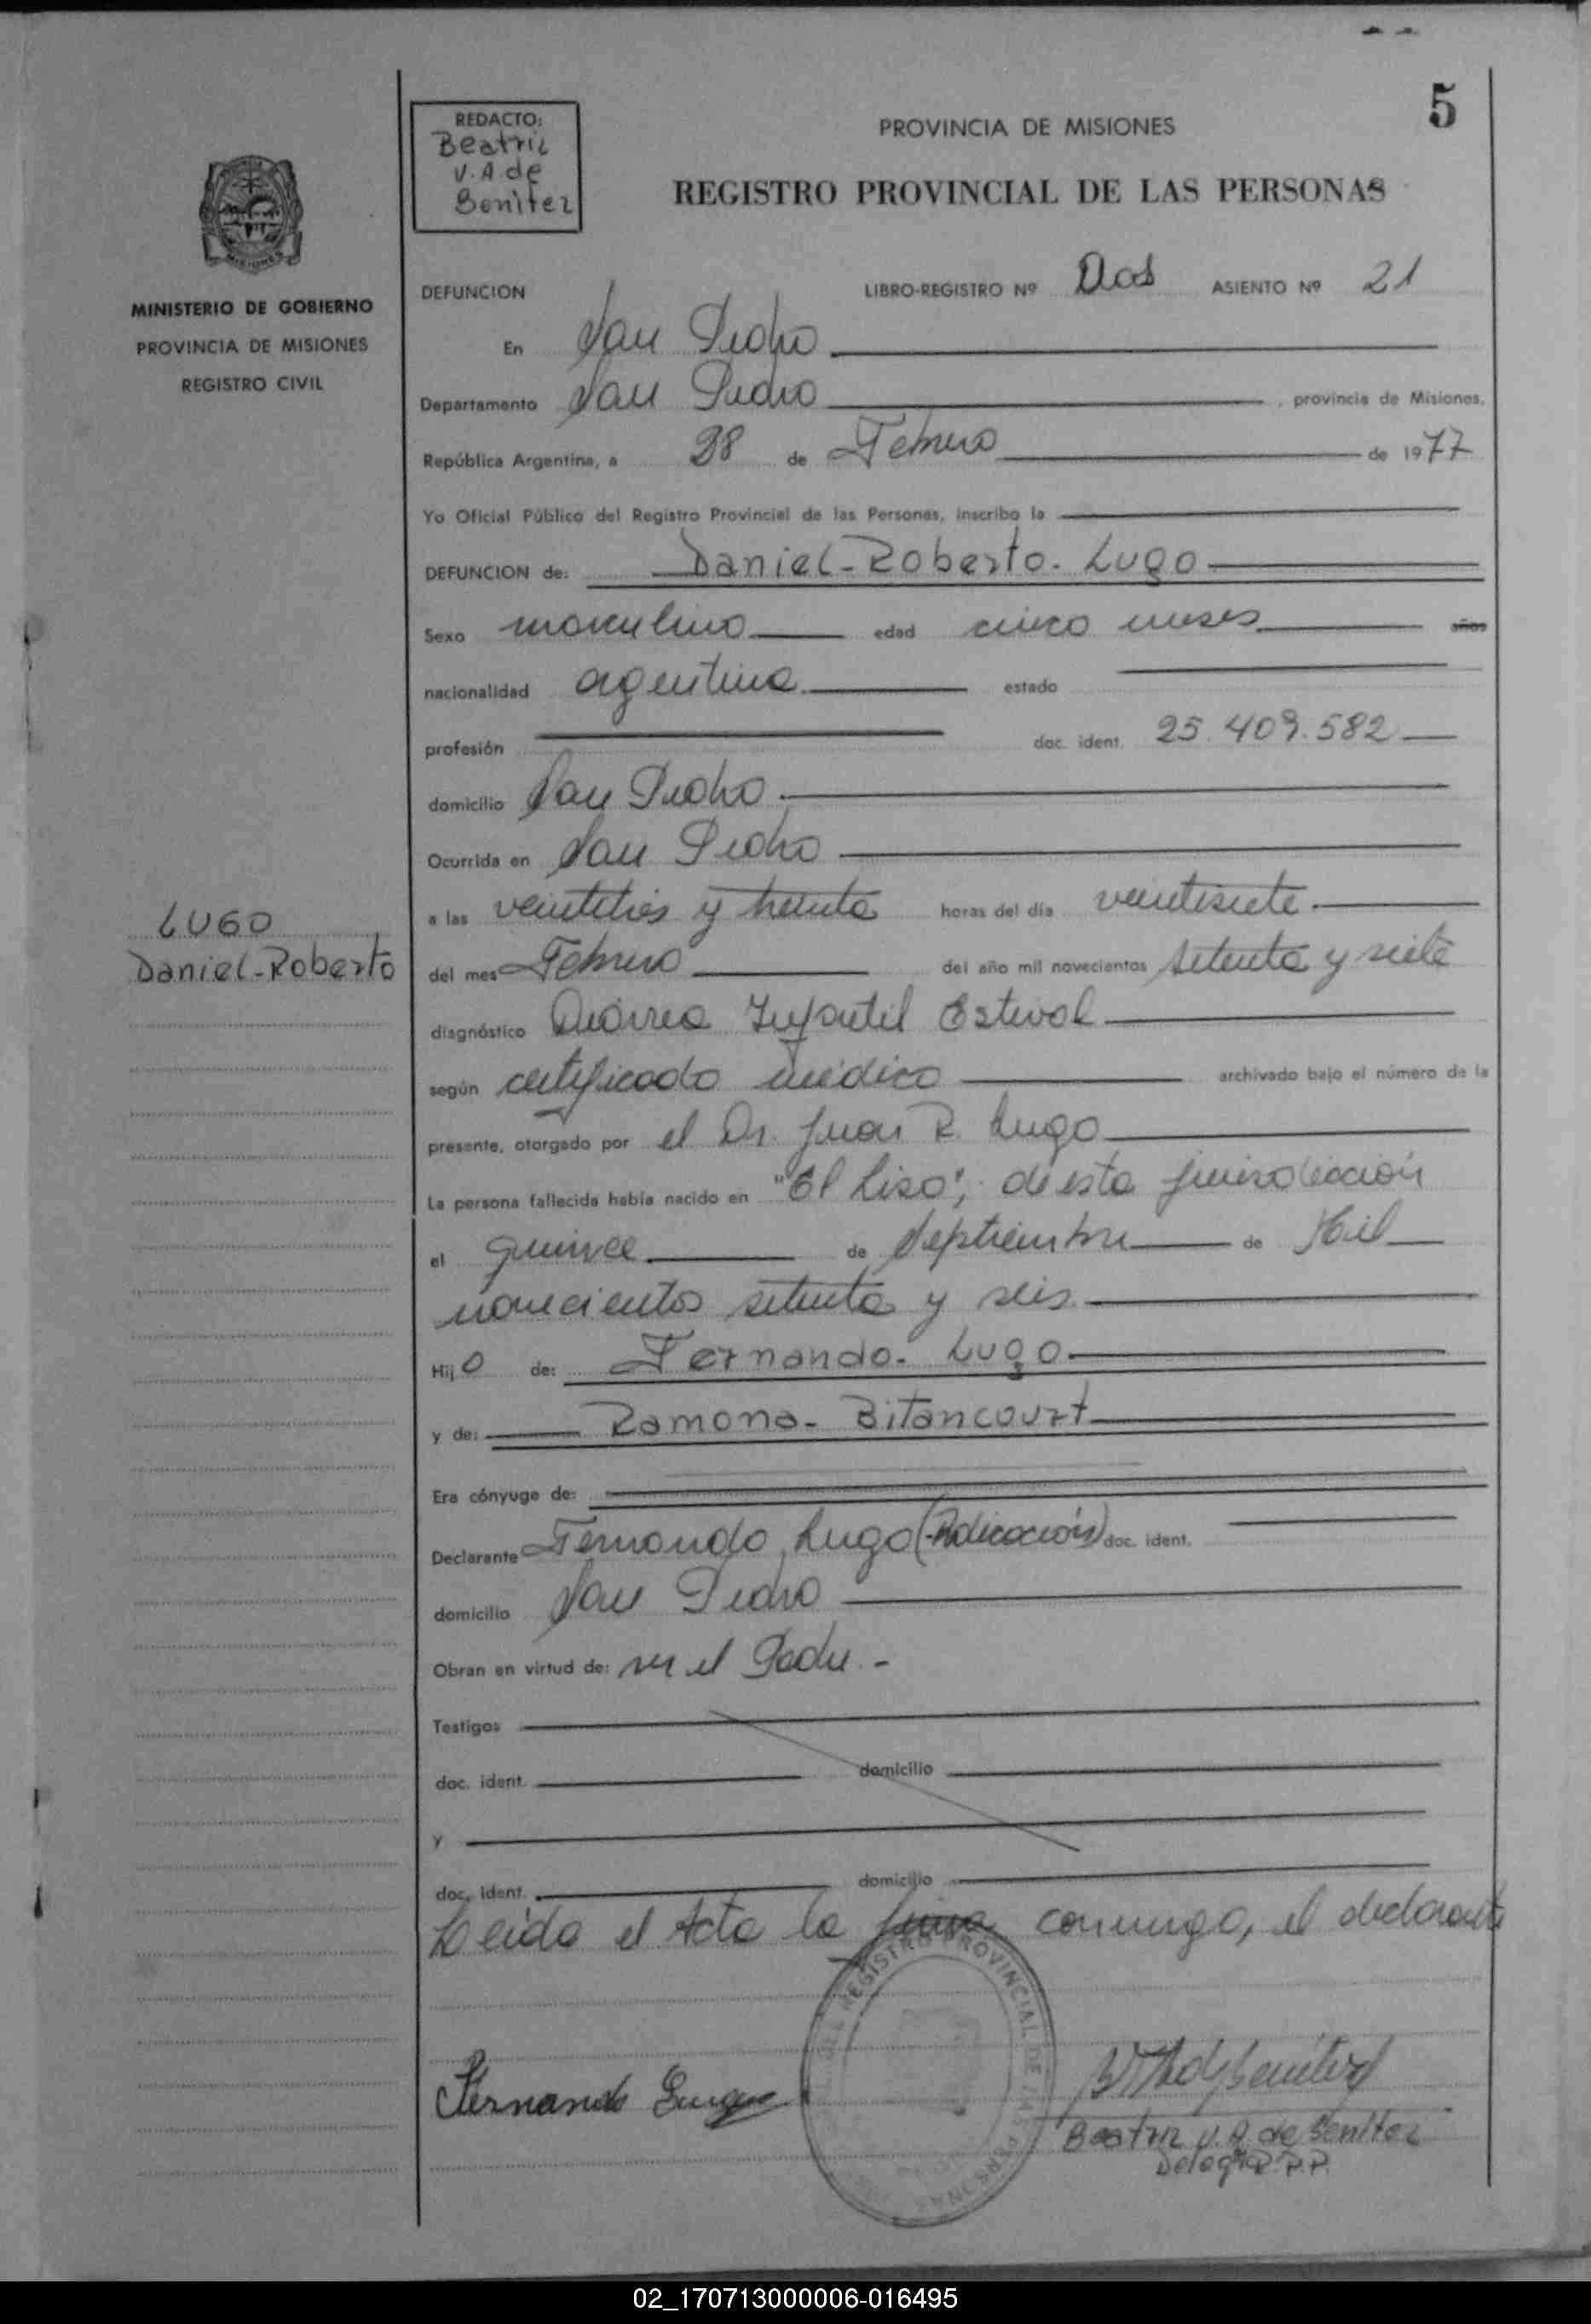 5
REDACTO:
Beatriz
V. A. de
Benitez
PROVINCIA DE MISIONES
REGISTRO PROVINCIAL DE LAS PERSONAS
MISIONES
MINISTERIO DE GOBIERNO
PROVINCIA DE MISIONES
REGISTRO CIVIL
LUGO
Daniel-Roberto
DEFUNCION LIBRO-REGISTRO Nº Dos ASIENTO Nº 21
En San Pedro
Departamento San Pedro , provincia de Misiones,
República Argentina, a 28 de Febrero de 1977
Yo Oficial Público del Registro Provincial de las Personas, inscribo la
DEFUNCION de: Daniel-Roberto-Lugo
Sexo masculino edad cinco meses años
nacionalidad argentina estado
profesión doc. ident. 25.409.582
domicilio San Pedro
Ocurrida en San Pedro
a las veintitrés y treinta horas del día veintisiete
del mes Febrero del año mil novecientos setenta y siete
diagnóstico Diárrea Infantil Estival
según certificado médico archivado bajo el número de la
presente, otorgado por el Dr. Juan R. Lugo
La persona fallecida había nacido en "El Liso", de esta jurisdicción
el quince de Septiembre de Mil
novecientos setenta y seis
Hijo de: Fernando-Lugo
y de: Ramona-Bitancourt
Era cónyuge de:
Declarante Fernando Lugo doc. ident.
domicilio San Pedro
Obran en virtud de: ser el Padre.-
Testigos
doc. ident. domicilio
y
doc. ident. domicilio
Leida el Acta la firma conmigo, el declarante
REGISTRO PROVINCIAL DE LAS PERSONAS
Fernando Lugo
Beatriz V. A. de Benitez
Deleg R.P.P.
02_170713000006-016495